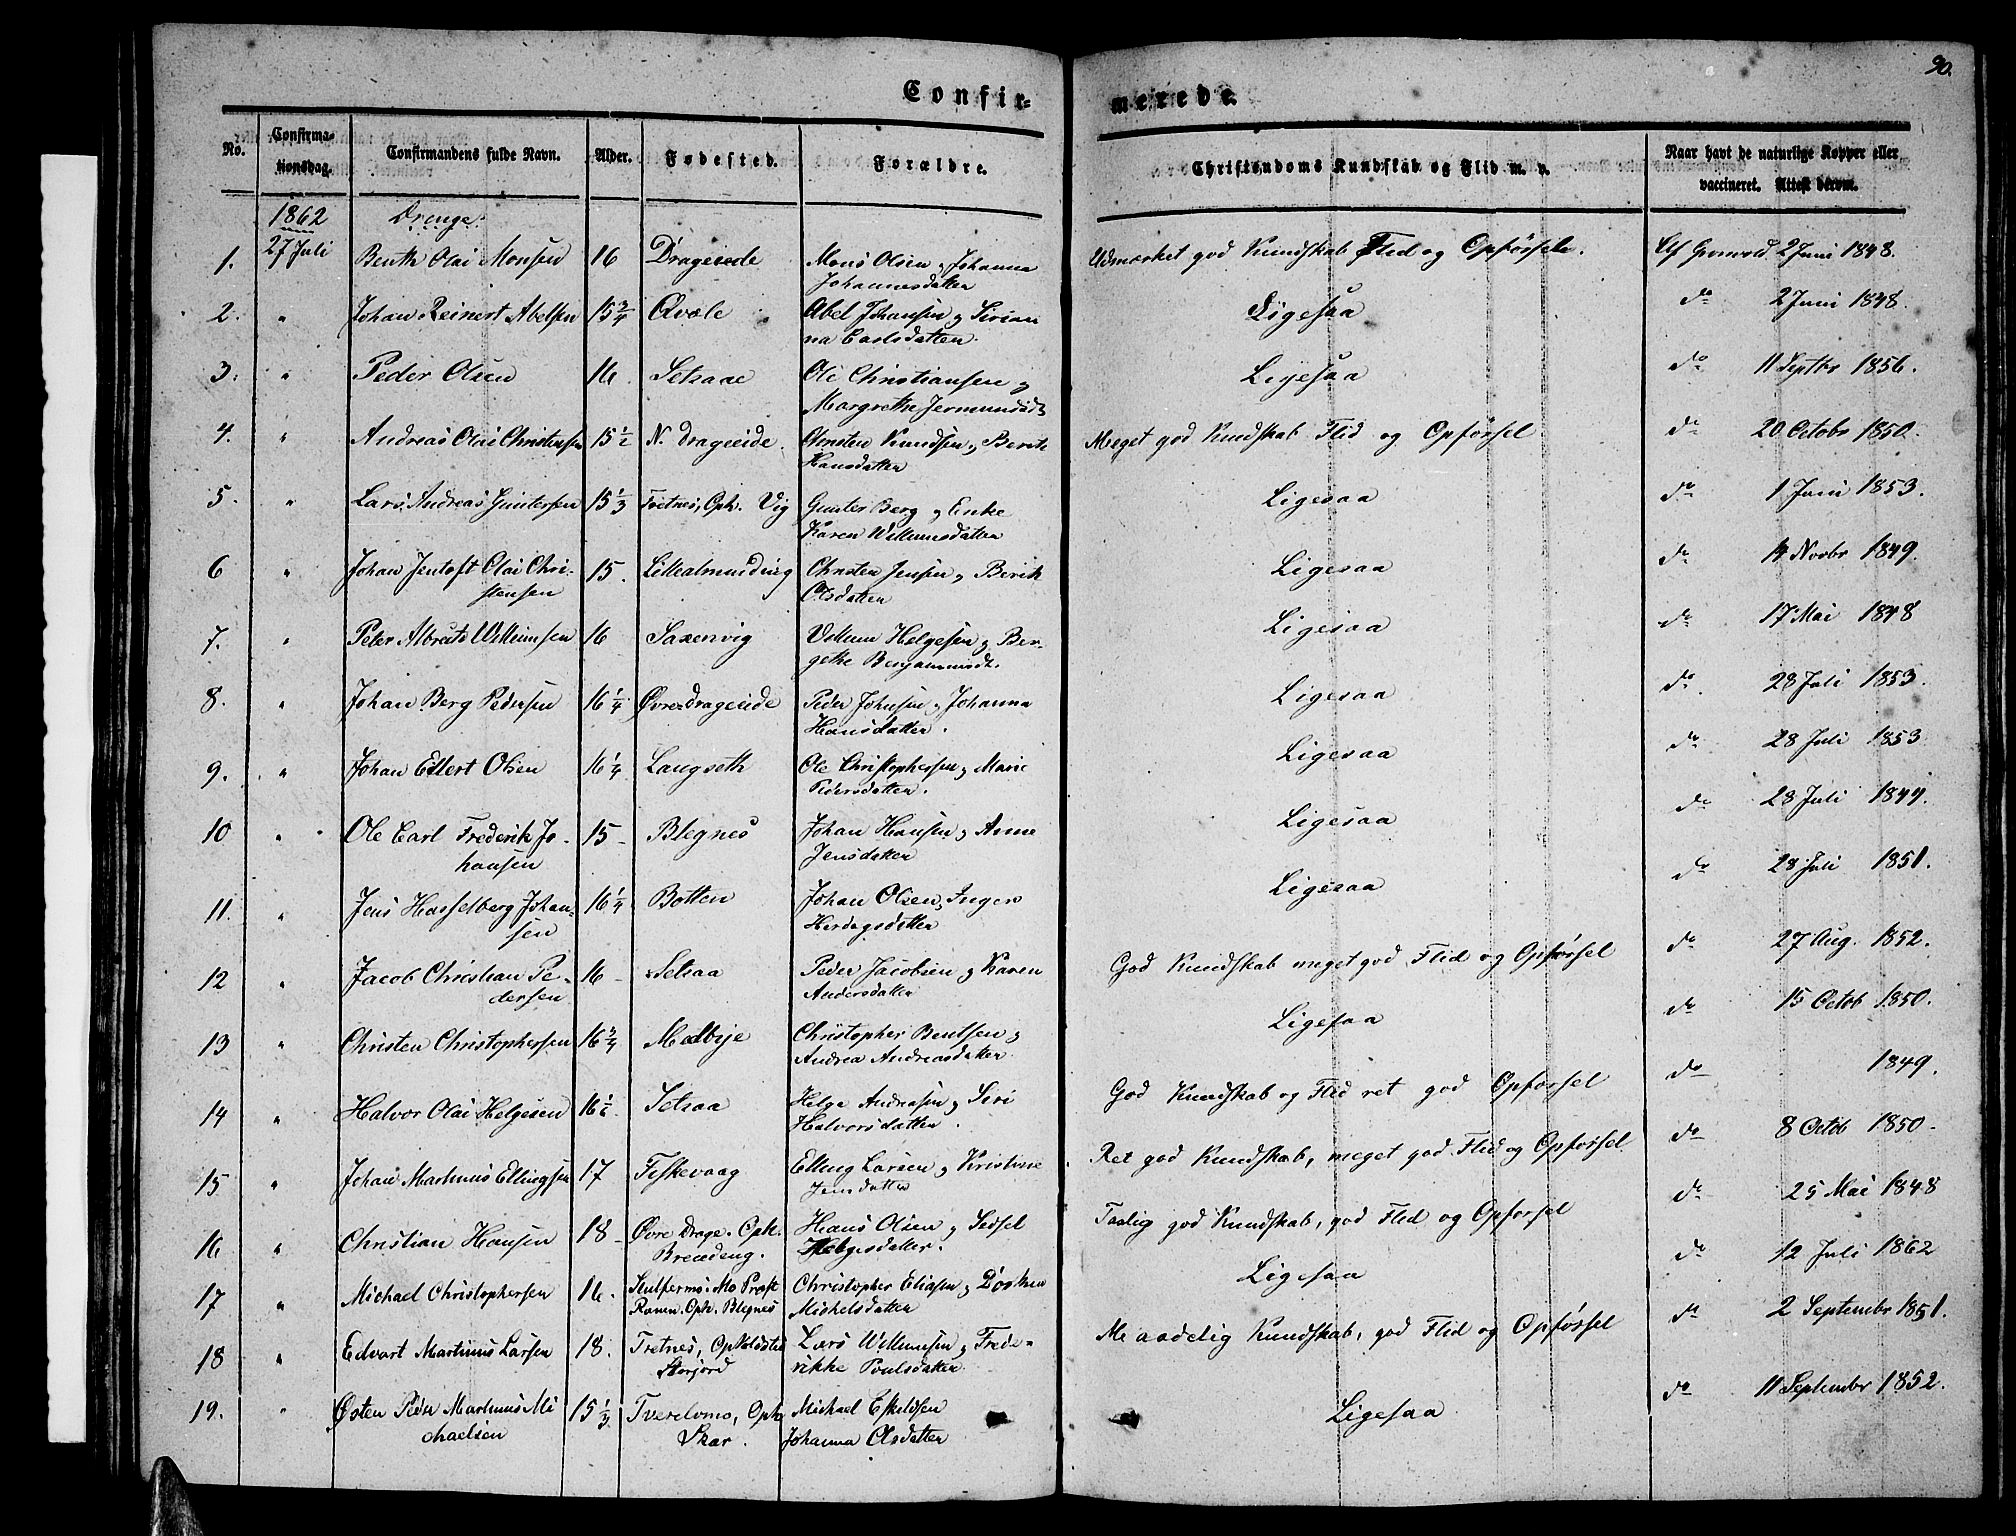 90.
Confir-
merede.
No.
Confirma-
tionsdag.
Confirmandens fulde Navn.
Alder.
Fødested.
Forældre.
Christendoms Kundskab og Flid m. v.
Naar havt de naturlige Kopper eller
vaccineret. Attest derom.
1862 Drenge.
1. 27 Juli Benth Olai Monsen 16 Drageeide Mons Olsen og Johanna Udmærket god Kundskab Flid og Opførsel. Af Grønvold 2 Juni 1848.
Johannesdatter
2. " Johan Reinert Abelsen 15 3/4 Qvale Abel Johansen og Sirian Ligesaa do 2 Juni 1848.
na Carlsdatter.
3. " Peder Olsen 16 Setsaae Ole Christiansen og Ligesaa do 11 Septbr 1856.
Margrethe Jermundsd
4. " Andreas Olai Christensen 15 1/2 N. Drageeide. Christen Knudsen og Berith Meget god Kundskab Flid og Opførsel. do 20 Octobr 1850.
Hansdatter
5. " Lars Andreas Guntersen 15 1/3 Tretnes, Oph. Vig Gunter Berg og Enke Ligesaa do 1 Juni 1853.
Karen Willumsdatter
6 " Johan Jentoft Olai Chri- 15. Lillealmending Christen Jensen og Berith Ligesaa do 14 Novbr 1849.
stensen Olsdatter
7. " Peter Albrikt Willumsen 16 Saxenvig Villum Helgesen og Ber- Ligesaa do 17 Mai 1848
gethe Benjaminsdt.
8. " Johan Berg Pedersen 16 1/4 Øvredrageeide Peder Johnsen og Johanna Ligesaa do. 28 Juli 1853.
Hansdatter.
9. " Johan Ellert Olsen 16 1/4 Langseth Ole Christophersen og Marie Ligesaa do 28 Juli 1853
Pedersdatter.
10 " Ole Carl Frederik Jo- 15 - Blegnes Johan Hansen og Anne Ligesaa do 28 Juli 1849.
hansen Jensdatter
11. " Jens Hasselberg Johan- 16 1/4 Botten Johan Olsen, Inger Ligesaa do 28 Juli 1851.
sen Herdagsdatter
12 " Jacob Christian Pe- 16 - Setsaa Peder Jacobsen og Karen God Kundskab meget god Flid og Opførsel do 27 Aug. 1852.
dersen Andersdatter
13 " Christen Christophersen 16 3/4 Medbye Christopher Bentsen og Ligesaa do 15 Octob 1850.
Andrea Andreasdatter
14 " Halvor Olai Helgesen 16 1/2. Setsaa Helge Andreasen og Siri God Kundskab og Flid ret god Opførsel do 1849.
Halvorsdatter.
15 " Johan Martinus Ellingsen 17 Fiskevaag Elling Larsen og Kristine Ret god Kundskab, meget god Flid og Opførsel. do 8 Octob 1850.
Jensdatter
16 " Christian Hansen 18 - Øvre Drage. Oph. Hans Olsen og Sidsel Taalig god Kundskab, god Flid og Opførsel do 25 Mai 1848
Breedeng. Helgesdatter.
17 " Michael Christophersen 16. Mo Præst Christopher Eliasen og Dorthea Ligesaa do 12 Juli 1862
Ranen. Oph. Blegnes Michelsdatter
18 " Edvart Martinus Larsen 18. Tretnes, Opholdsted Lars Willumsen og Frede- Maadelig Kundskab, god Flid og Opførsel do 2 Septembr 1851.
Storjord rikke Poulsdatter
19. " Østen Peder Martinus Mi 15 1/3 Tverelvmo, Oph. Michael Eskildsen Ligesaa do 11 Septembr 1852.
chaelsen Skar. Johanna Olsdatter